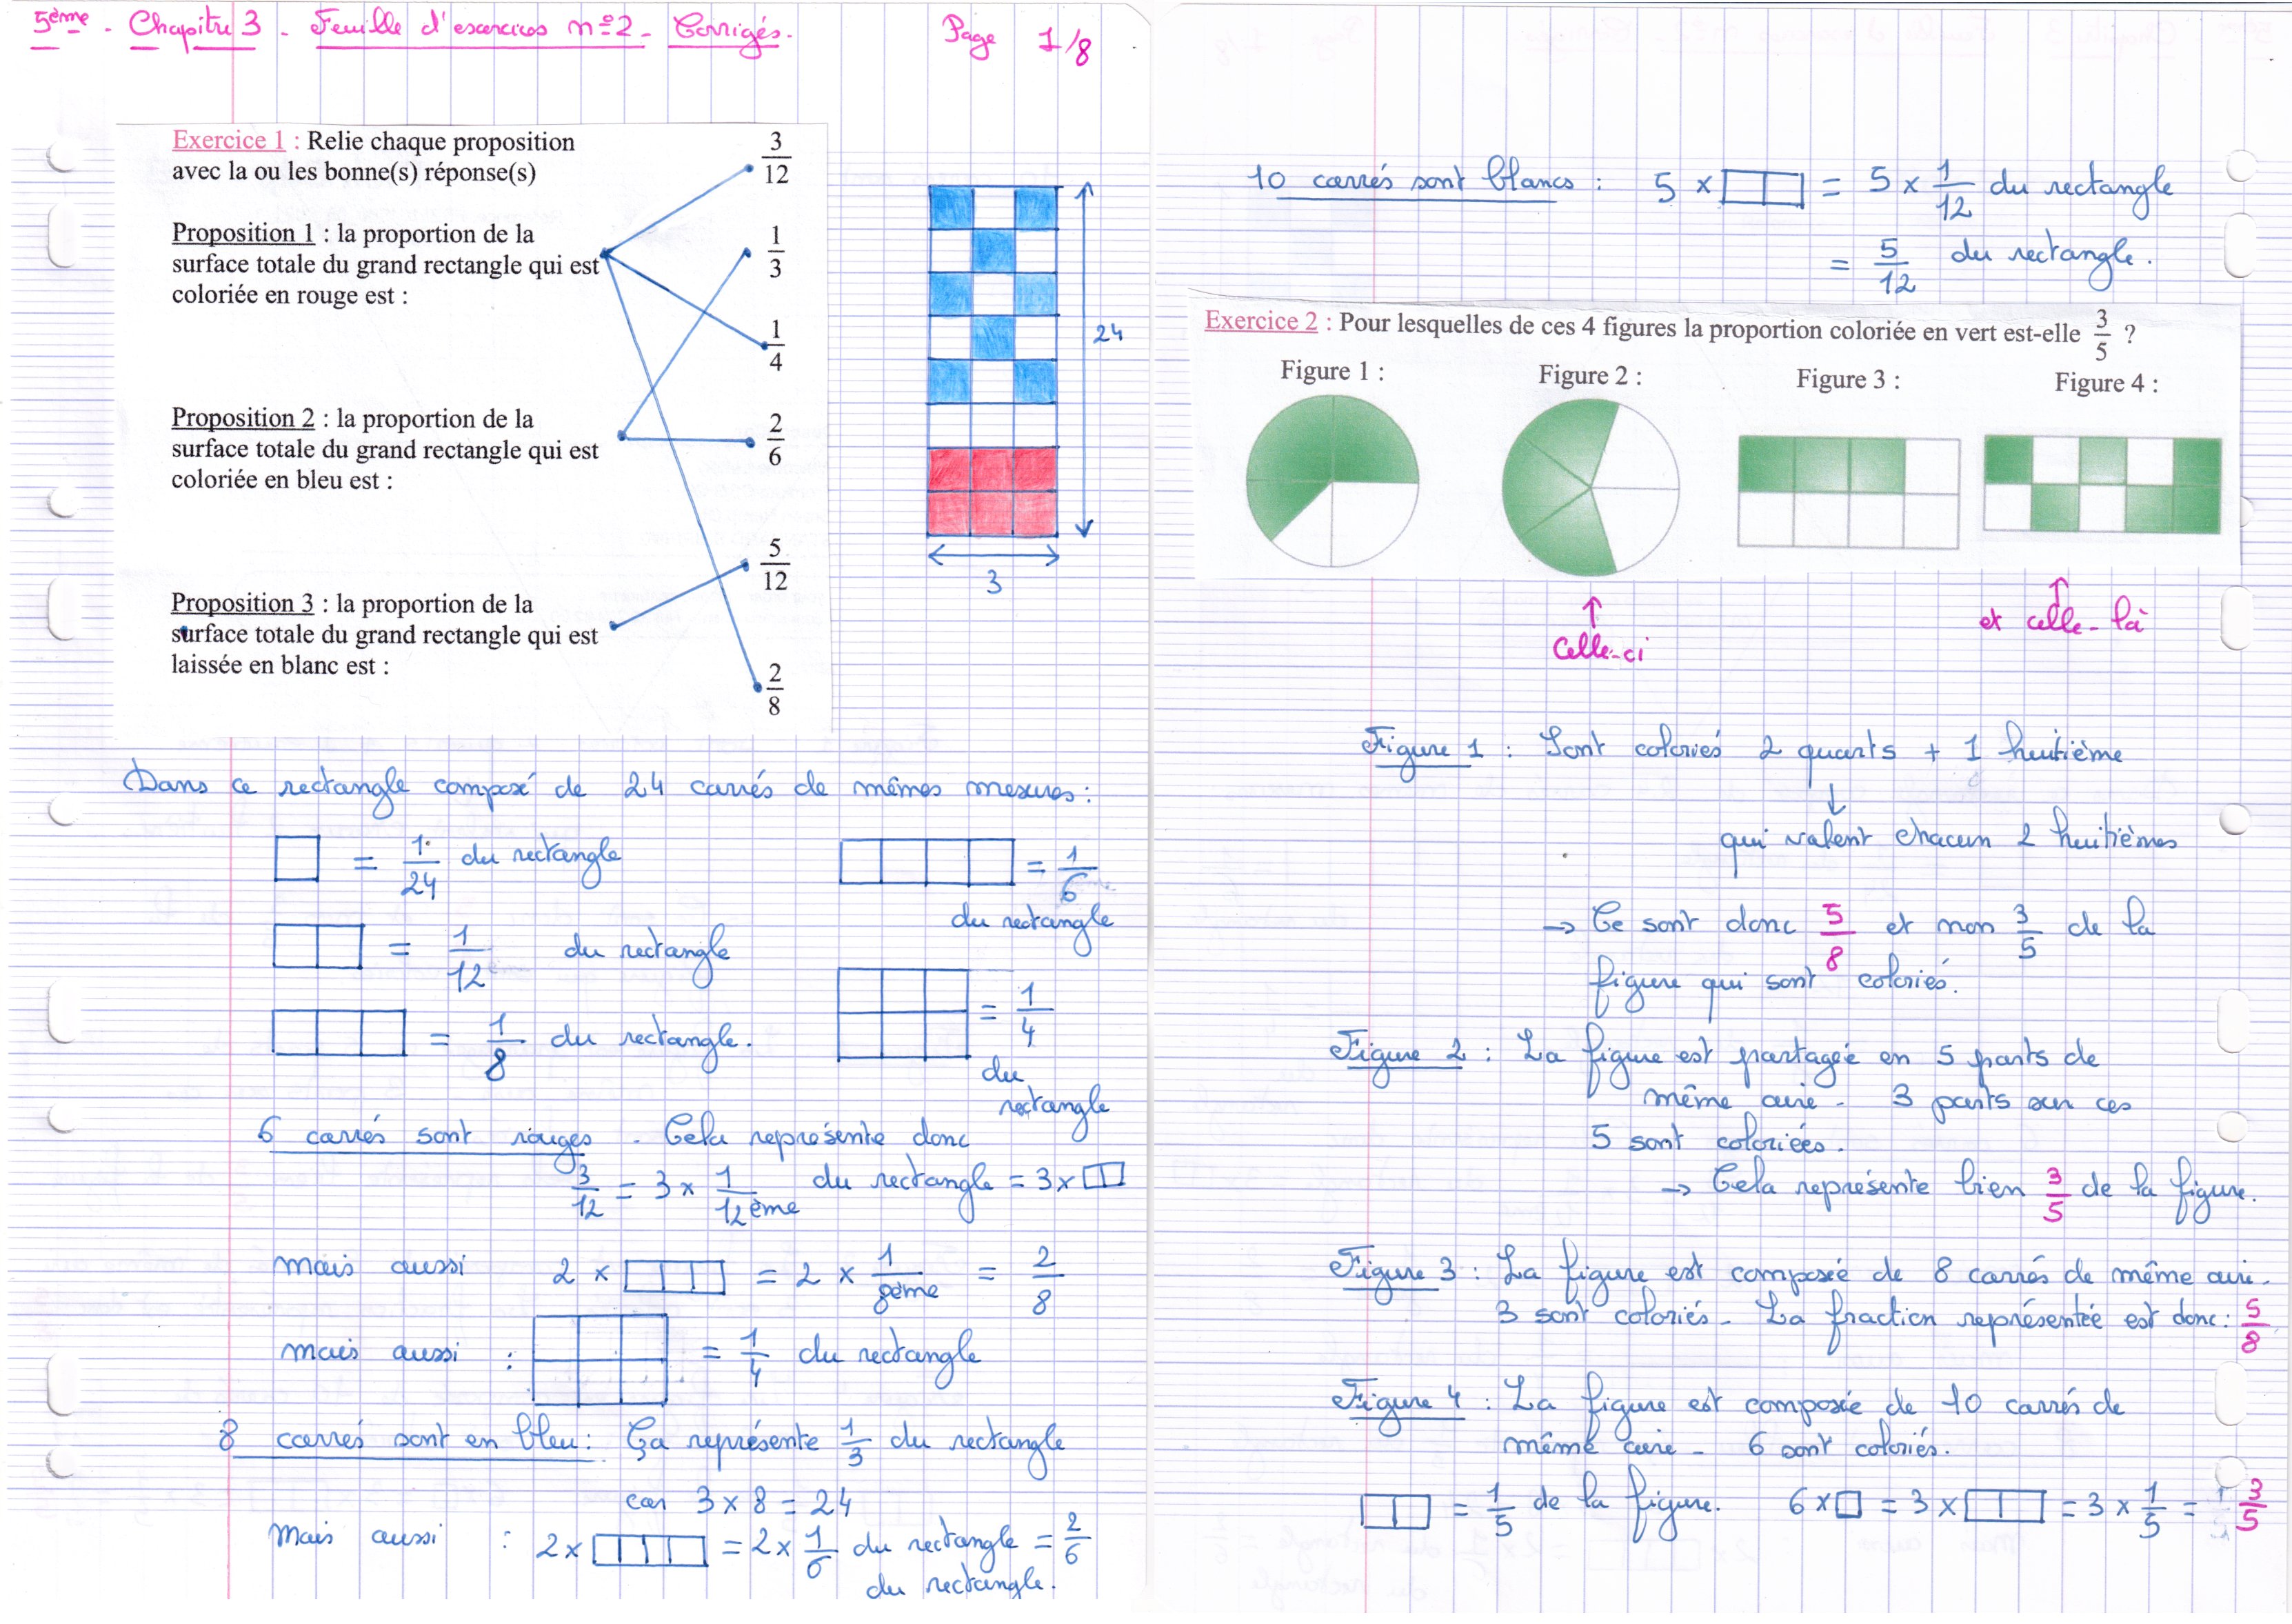 5ème - Chapitre 3 - Feuille d'exercices n°2 - Corrigés.
Page 1/8
Exercice 1 : Relie chaque proposition
avec la ou les bonne(s) réponse(s)
3/12
Proposition 1 : la proportion de la
surface totale du grand rectangle qui est
coloriée en rouge est :
1/3
1/4
Proposition 2 : la proportion de la
surface totale du grand rectangle qui est
coloriée en bleu est :
2/6
Proposition 3 : la proportion de la
surface totale du grand rectangle qui est
laissée en blanc est :
5/12
2/8
24
3
Dans ce rectangle composé de 24 carrés de mêmes mesures :
= 1/24 du rectangle
= 1/12 du rectangle
= 1/8 du rectangle.
= 1/6
du rectangle
= 1/4
du
rectangle
6 carrés sont rouges. Cela représente donc
3/12 = 3 × 1/12ème du rectangle = 3 ×
mais aussi 2 × = 2 × 1/8ème = 2/8
mais aussi : = 1/4 du rectangle
8 carrés sont en bleu : Ça représente 1/3 du rectangle
car 3 × 8 = 24
Mais aussi : 2 × = 2 × 1/6 du rectangle = 2/6
du rectangle.
10 carrés sont blancs : 5 × = 5 × 1/12 du rectangle
= 5/12 du rectangle.
Exercice 2 : Pour lesquelles de ces 4 figures la proportion coloriée en vert est-elle 3/5 ?
Figure 1 : Figure 2 : Figure 3 : Figure 4 :
↑ ↑
Celle-ci et celle-là
Figure 1 : Sont coloriés 2 quarts + 1 huitième
↓
qui valent chacun 2 huitièmes
→ Ce sont donc 5/8 et non 3/5 de la
figure qui sont coloriés.
Figure 2 : La figure est partagée en 5 parts de
même aire. 3 parts sur ces
5 sont coloriées.
→ Cela représente bien 3/5 de la figure.
Figure 3 : La figure est composée de 8 carrés de même aire.
3 sont coloriés. La fraction représentée est donc : 5/8
Figure 4 : La figure est composée de 10 carrés de
même aire. 6 sont coloriés.
= 1/5 de la figure. 6 × = 3 × = 3 × 1/5 = 3/5